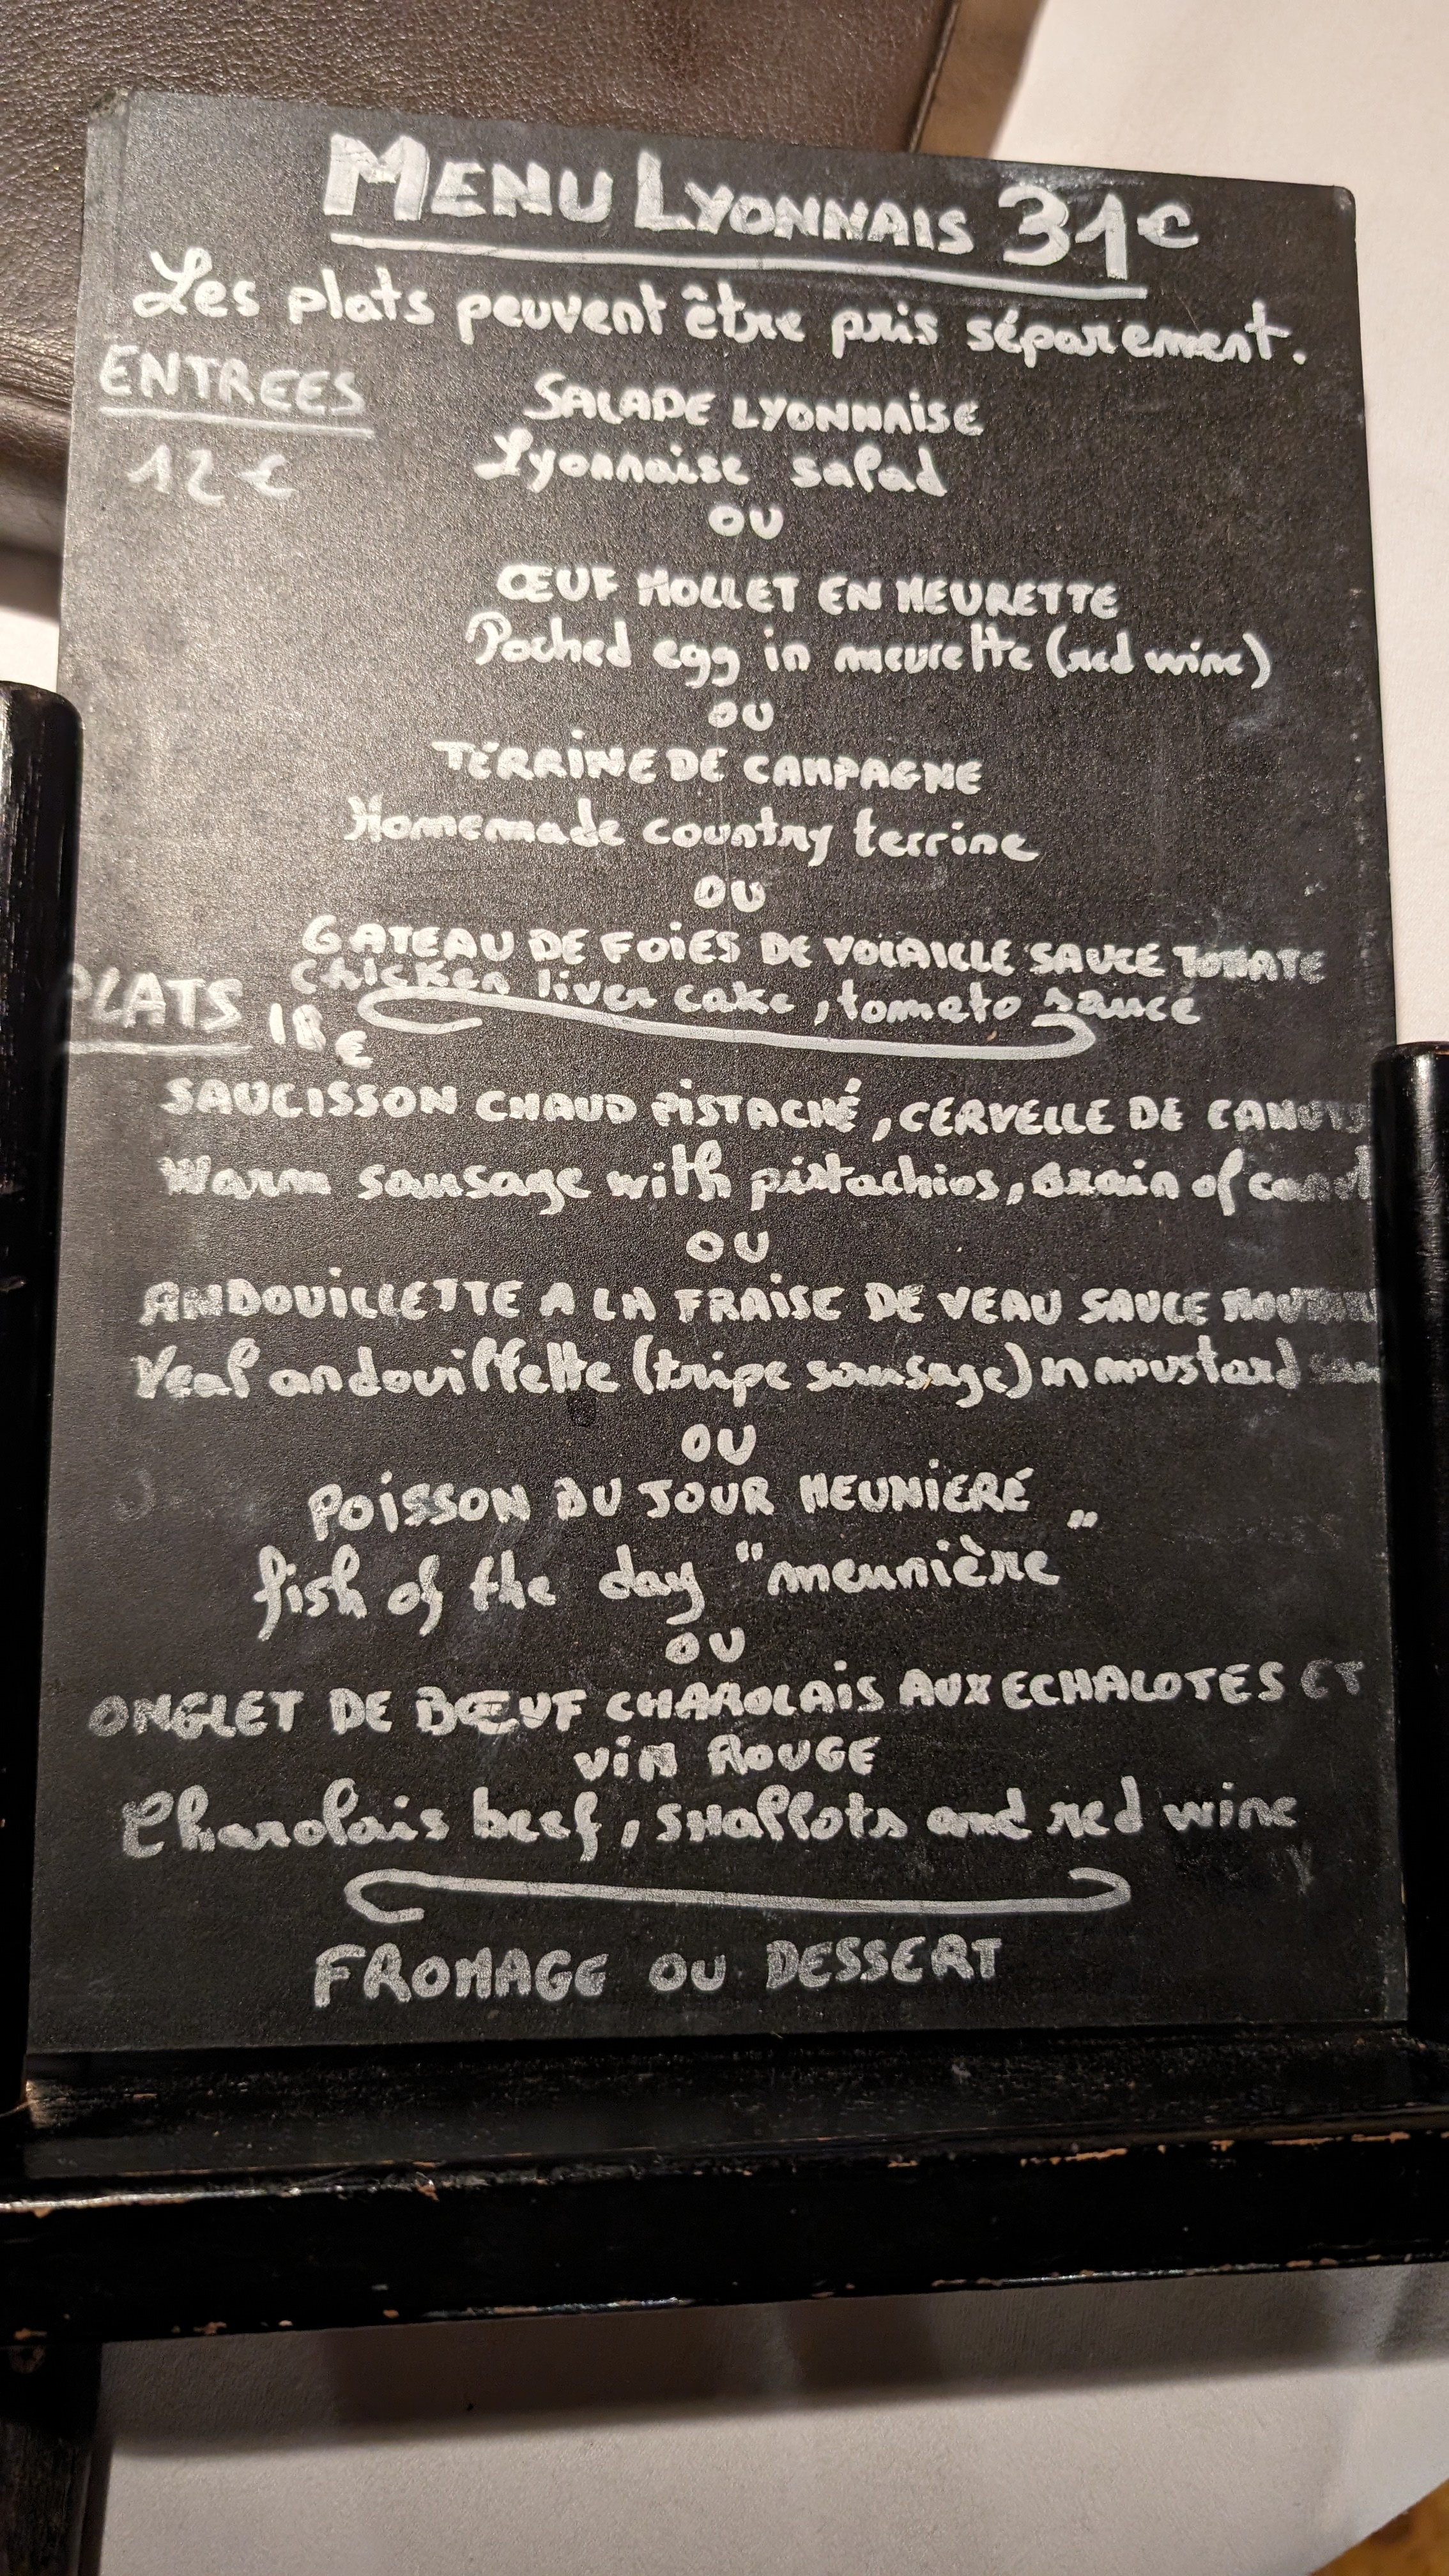 MENU LYONNAIS 31€
Les plats peuvent être pris séparement.
ENTREES
12€
SALADE LYONNAISE
Lyonnaise salad
OU
ŒUF MOLLET EN MEURETTE
Poched egg in meurette (red wine)
OU
TERRINE DE CAMPAGNE
Homemade country terrine
OU
GATEAU DE FOIES DE VOLAILLE SAUCE TOMATE
Chicken liver cake, tomato sauce
PLATS 18€
SAUCISSON CHAUD PISTACHÉ, CERVELLE DE CANUTS
Warm sausage with pistachios, brain of
OU
ANDOUILLETTE A LA FRAISE DE VEAU SAUCE
Veal andouillette (tripe sausage) in mustard
OU
POISSON DU JOUR MEUNIERE
fish of the day "meunière"
OU
ONGLET DE BŒUF CHAROLAIS AUX ECHALOTES ET
VIN ROUGE
Charolais beef, shallots and red wine
FROMAGE OU DESSERT